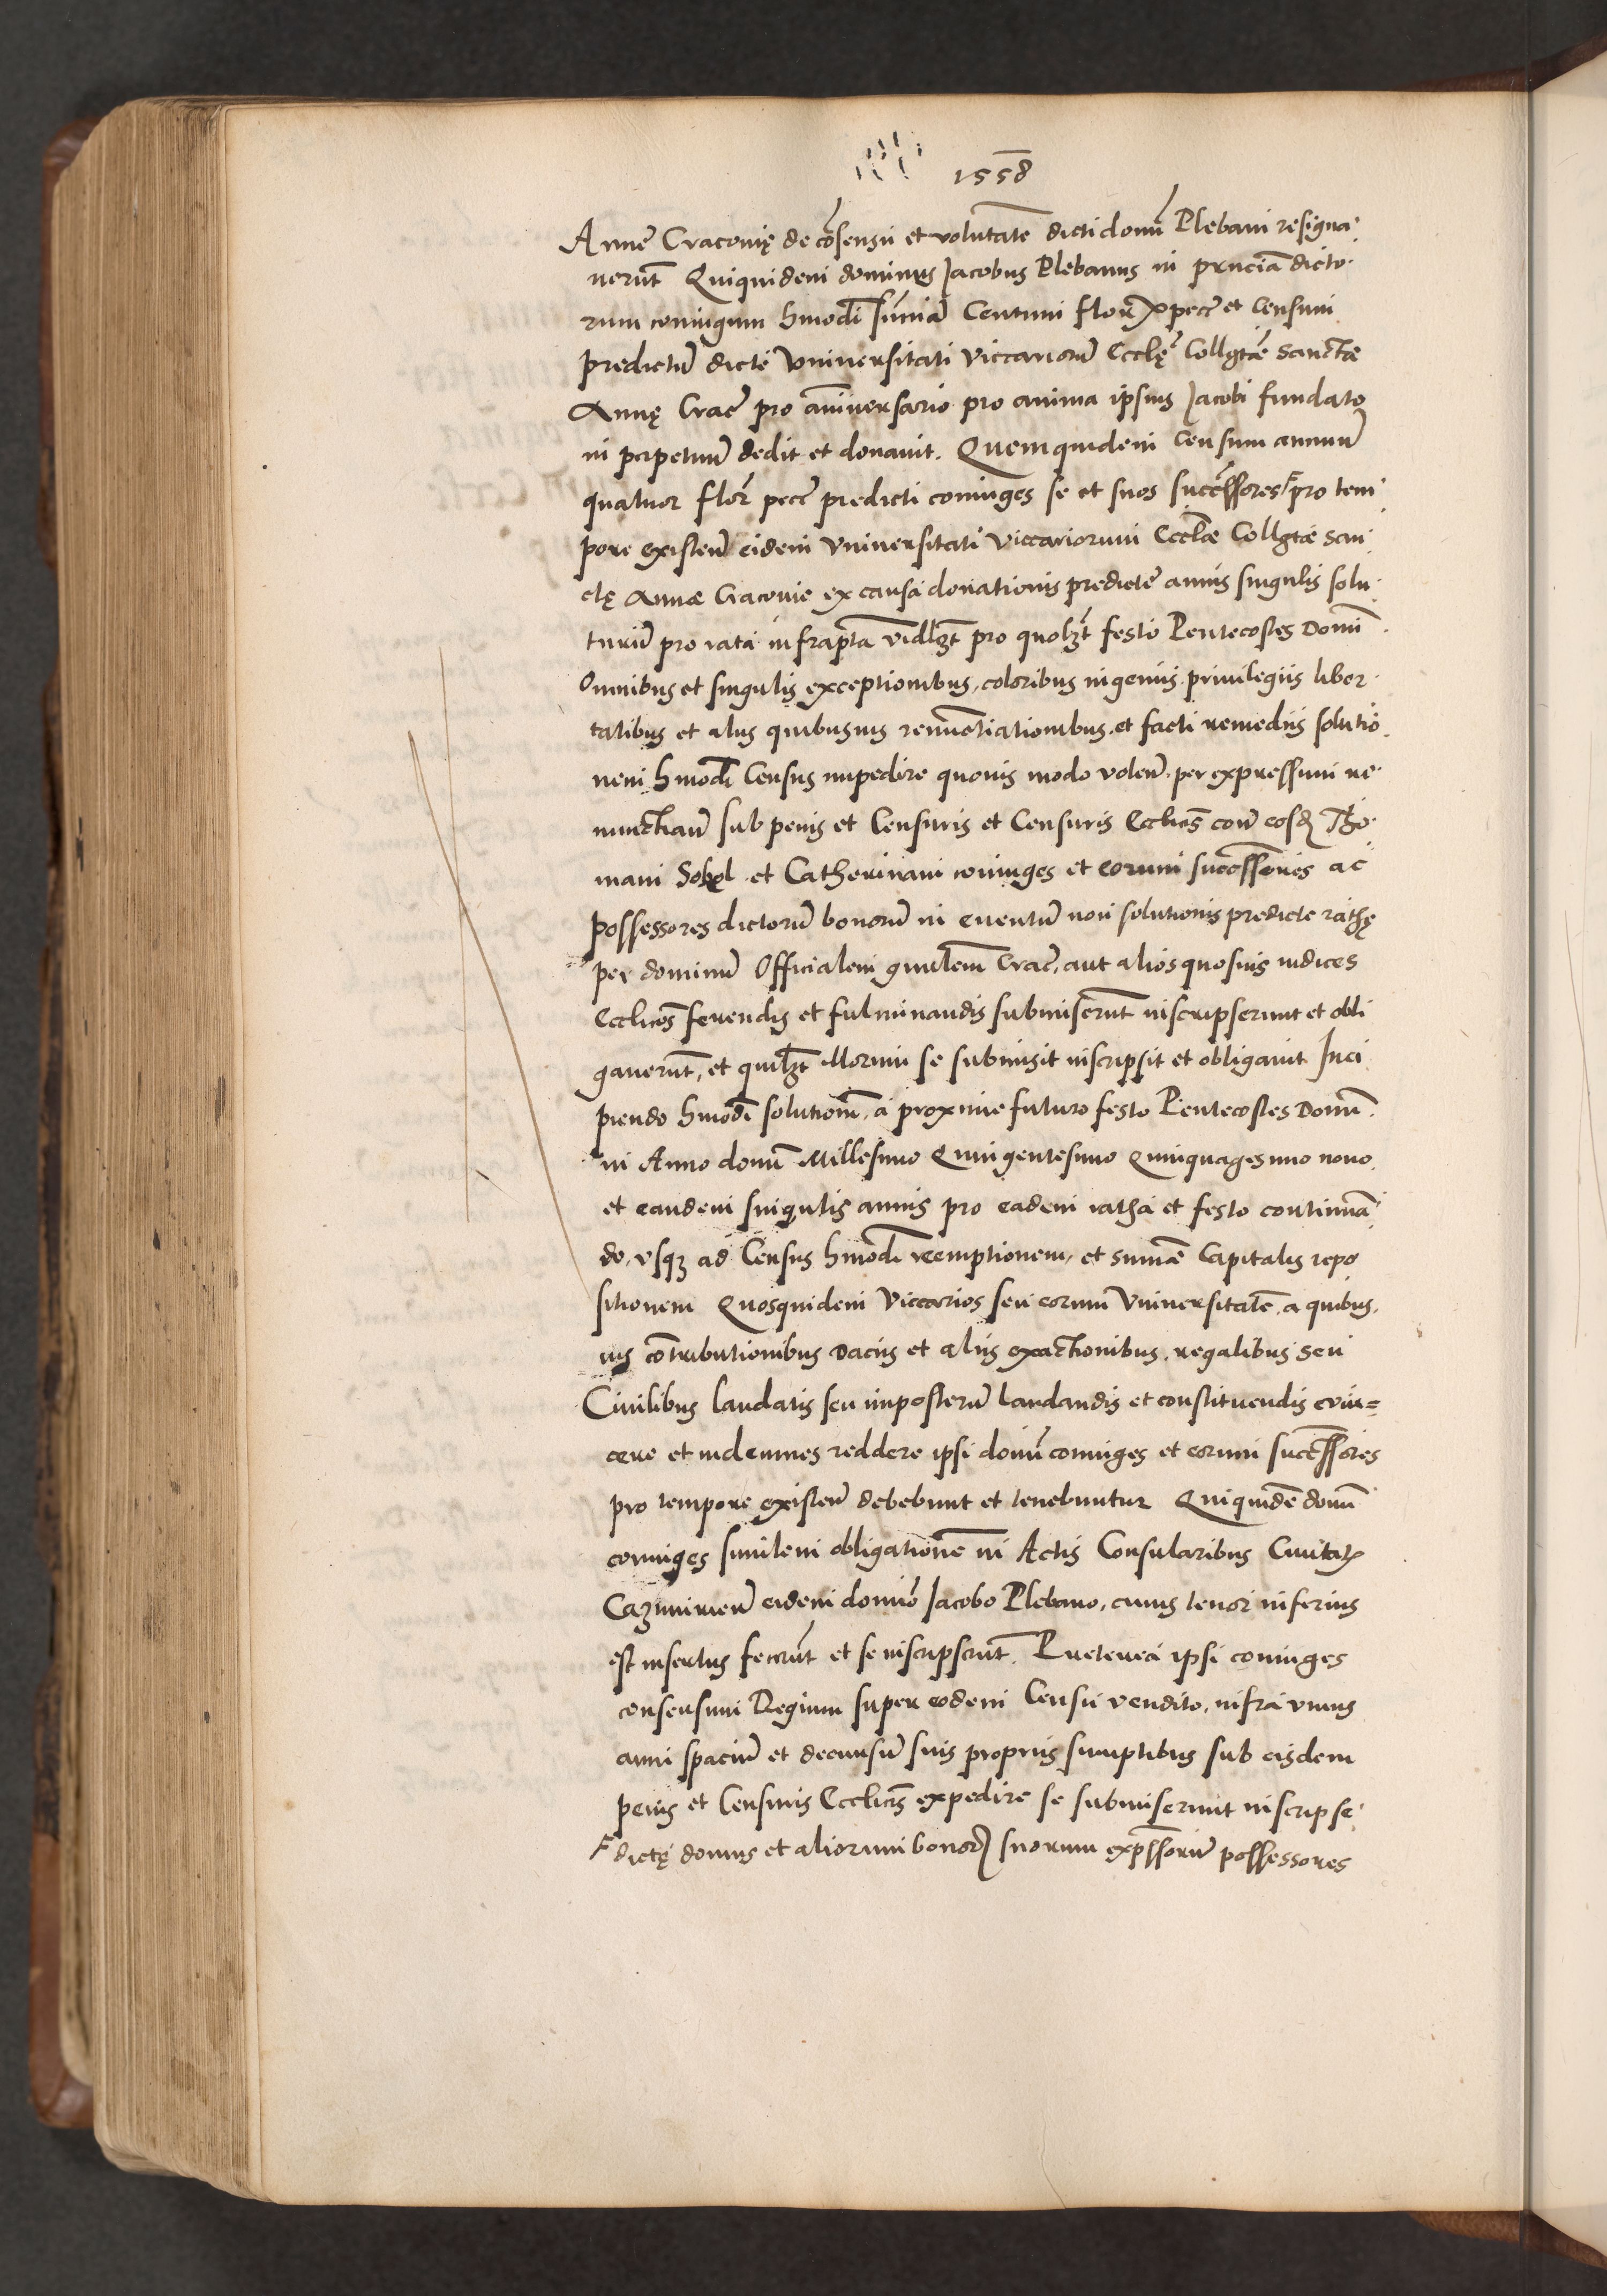 1558
Annę Cracovię de cōsensu et volūtatē dicti domī Plebani resigna
verūt Quiquidem dominus Jacobus Plebanus in pn̄ciā dicto
rum coniugum hmōdi sum̄ā Centum florꝝ pec̄ et Censum
predictū dictę Vniversitati Viccariorū Ecclę Collgtæ Sanctæ
Annę Crac̄ pro āniversario pro anima ipsius Jacobi fundato
in perpetuū dedit et donavit. Quemquidem Censum annuū
quatuor flor̄ pec̄ predicti coniuges se et suos successores ꟻ pro tem
pore existeñ eidem Vniversitati Viccariorum Ecclæ Collgtæ San
ctę Annæ Cracovie ex causa donationis predictę annis singulis solu
turū pro rata infrapta vidlzt pro quolzt festo Pentecostes Domī
Omnibus et singulis exceptionibus, coloribus ingeniis privilegiis liber
tatibus et aliis quibusvis renūctiationibus et facti remediis solutio
nem hmōdi Census impedire quovis modo voleñ per expressum re
nunctiañ sub penis et Censuris et Censuris Ecclicis con̄ eosd Tho
mam Sobel et Catherinam coniuges et eorum successores ac
possessores dictorū bonorū in eventū non solutionis predicte rathę
per dominū Officialem gnalem Crac̄, aut alios quosvis iudices
Ecclicos ferendis et fulminandis submiserūt inscripserunt et obli
gaverūt, et quilzt illorum se submisit inscripsit et obligavit Inci
piendo hmōdi solutionē, a proxime futuro festo Pentecostes Domī
in Anno domī Millesimo Quingentesimo Quinquagesimo nono
et eandem singulis annis pro eadem ratha et festo continuā
do, vsqz ad Census hmōdi reemptionem, et sumæ Capitalis repo
sitionem Quosquidem Viccarios seu eorum Vniversitatē, a quibus
vis cōtributionibus Daciis et aliis exactionibus, regalibus seu
Civilibus laudatis seu imposterū laudandis et constituendis evin=
cere et indemnes reddere ipsi domī coniuges et eorum successores
pro tempore existeñ debebunt et tenebuntur Quiquidē domī
coniuges similem obligationē in Actis Consularibus Civitatꝭ
Cazimirieñ eidem domīo Jacobo Plebano, cuius tenor inferius
est insertus fecerūt et se inscripserūt. Preterea ipsi coniuges
consensum Regium super eodem Censu vendito, infra vnius
anni spaciū et decursū suis propriis sumptibus sub eisdem
penis et Censuris Ecclicis expedire se submiserunt inscripse
ꟻ dictę domus et aliorum bonorꝝ suorum expssorū possessores